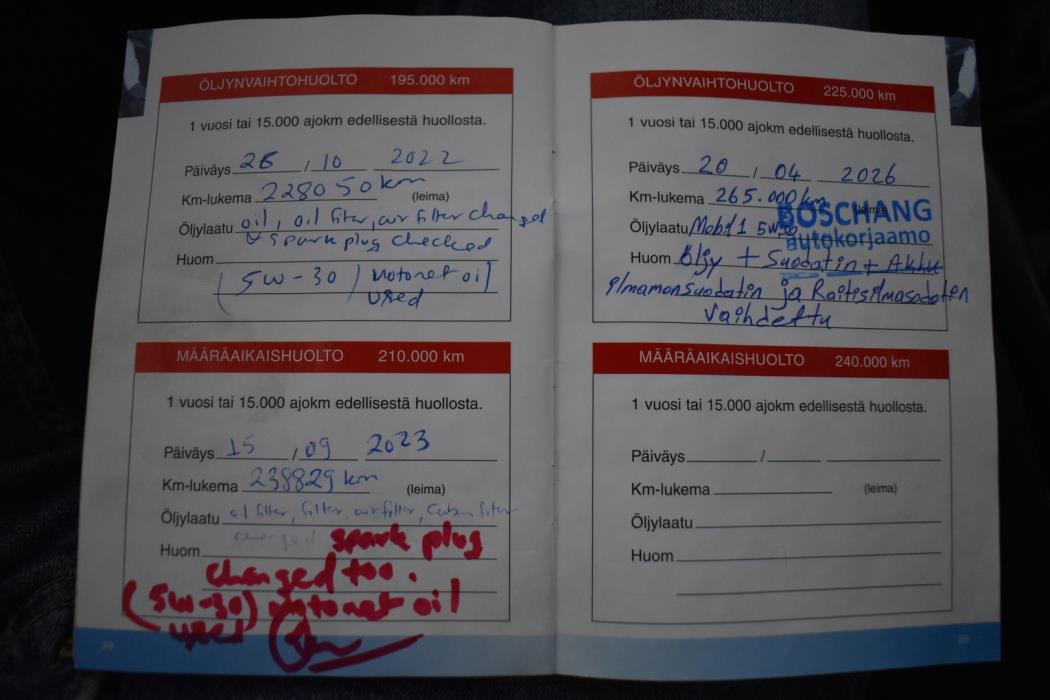 ÖLJYNVAIHTOHUOLTO 195.000 km
1 vuosi tai 15.000 ajokm edellisestä huollosta.
Päiväys 26 / 10 2022
Km-lukema 228050 km (leima)
Öljylaatu oil, oil filter, air filter changed
& spark plug checked
Huom
(5W-30) Motonet oil
used
MÄÄRÄAIKAISHUOLTO 210.000 km
1 vuosi tai 15.000 ajokm edellisestä huollosta.
Päiväys 15 / 09 2023
Km-lukema 238829 km (leima)
Öljylaatu oil filter, filter, air filter, Cabin filter
Huom changed spark plug
changed too.
(5W-30) Motonet oil
used
28
ÖLJYNVAIHTOHUOLTO 225.000 km
1 vuosi tai 15.000 ajokm edellisestä huollosta.
Päiväys 20 / 04 2026
Km-lukema 265.000 km (leima)
BOSCHANG
Öljylaatu Mobil 1 5W30
autokorjaamo
Huom Öljy + Suodatin + Akku
ilmamonsuodatin ja Raitisilmasodaten
vaihdettu
MÄÄRÄAIKAISHUOLTO 240.000 km
1 vuosi tai 15.000 ajokm edellisestä huollosta.
Päiväys /
Km-lukema (leima)
Öljylaatu
Huom
29